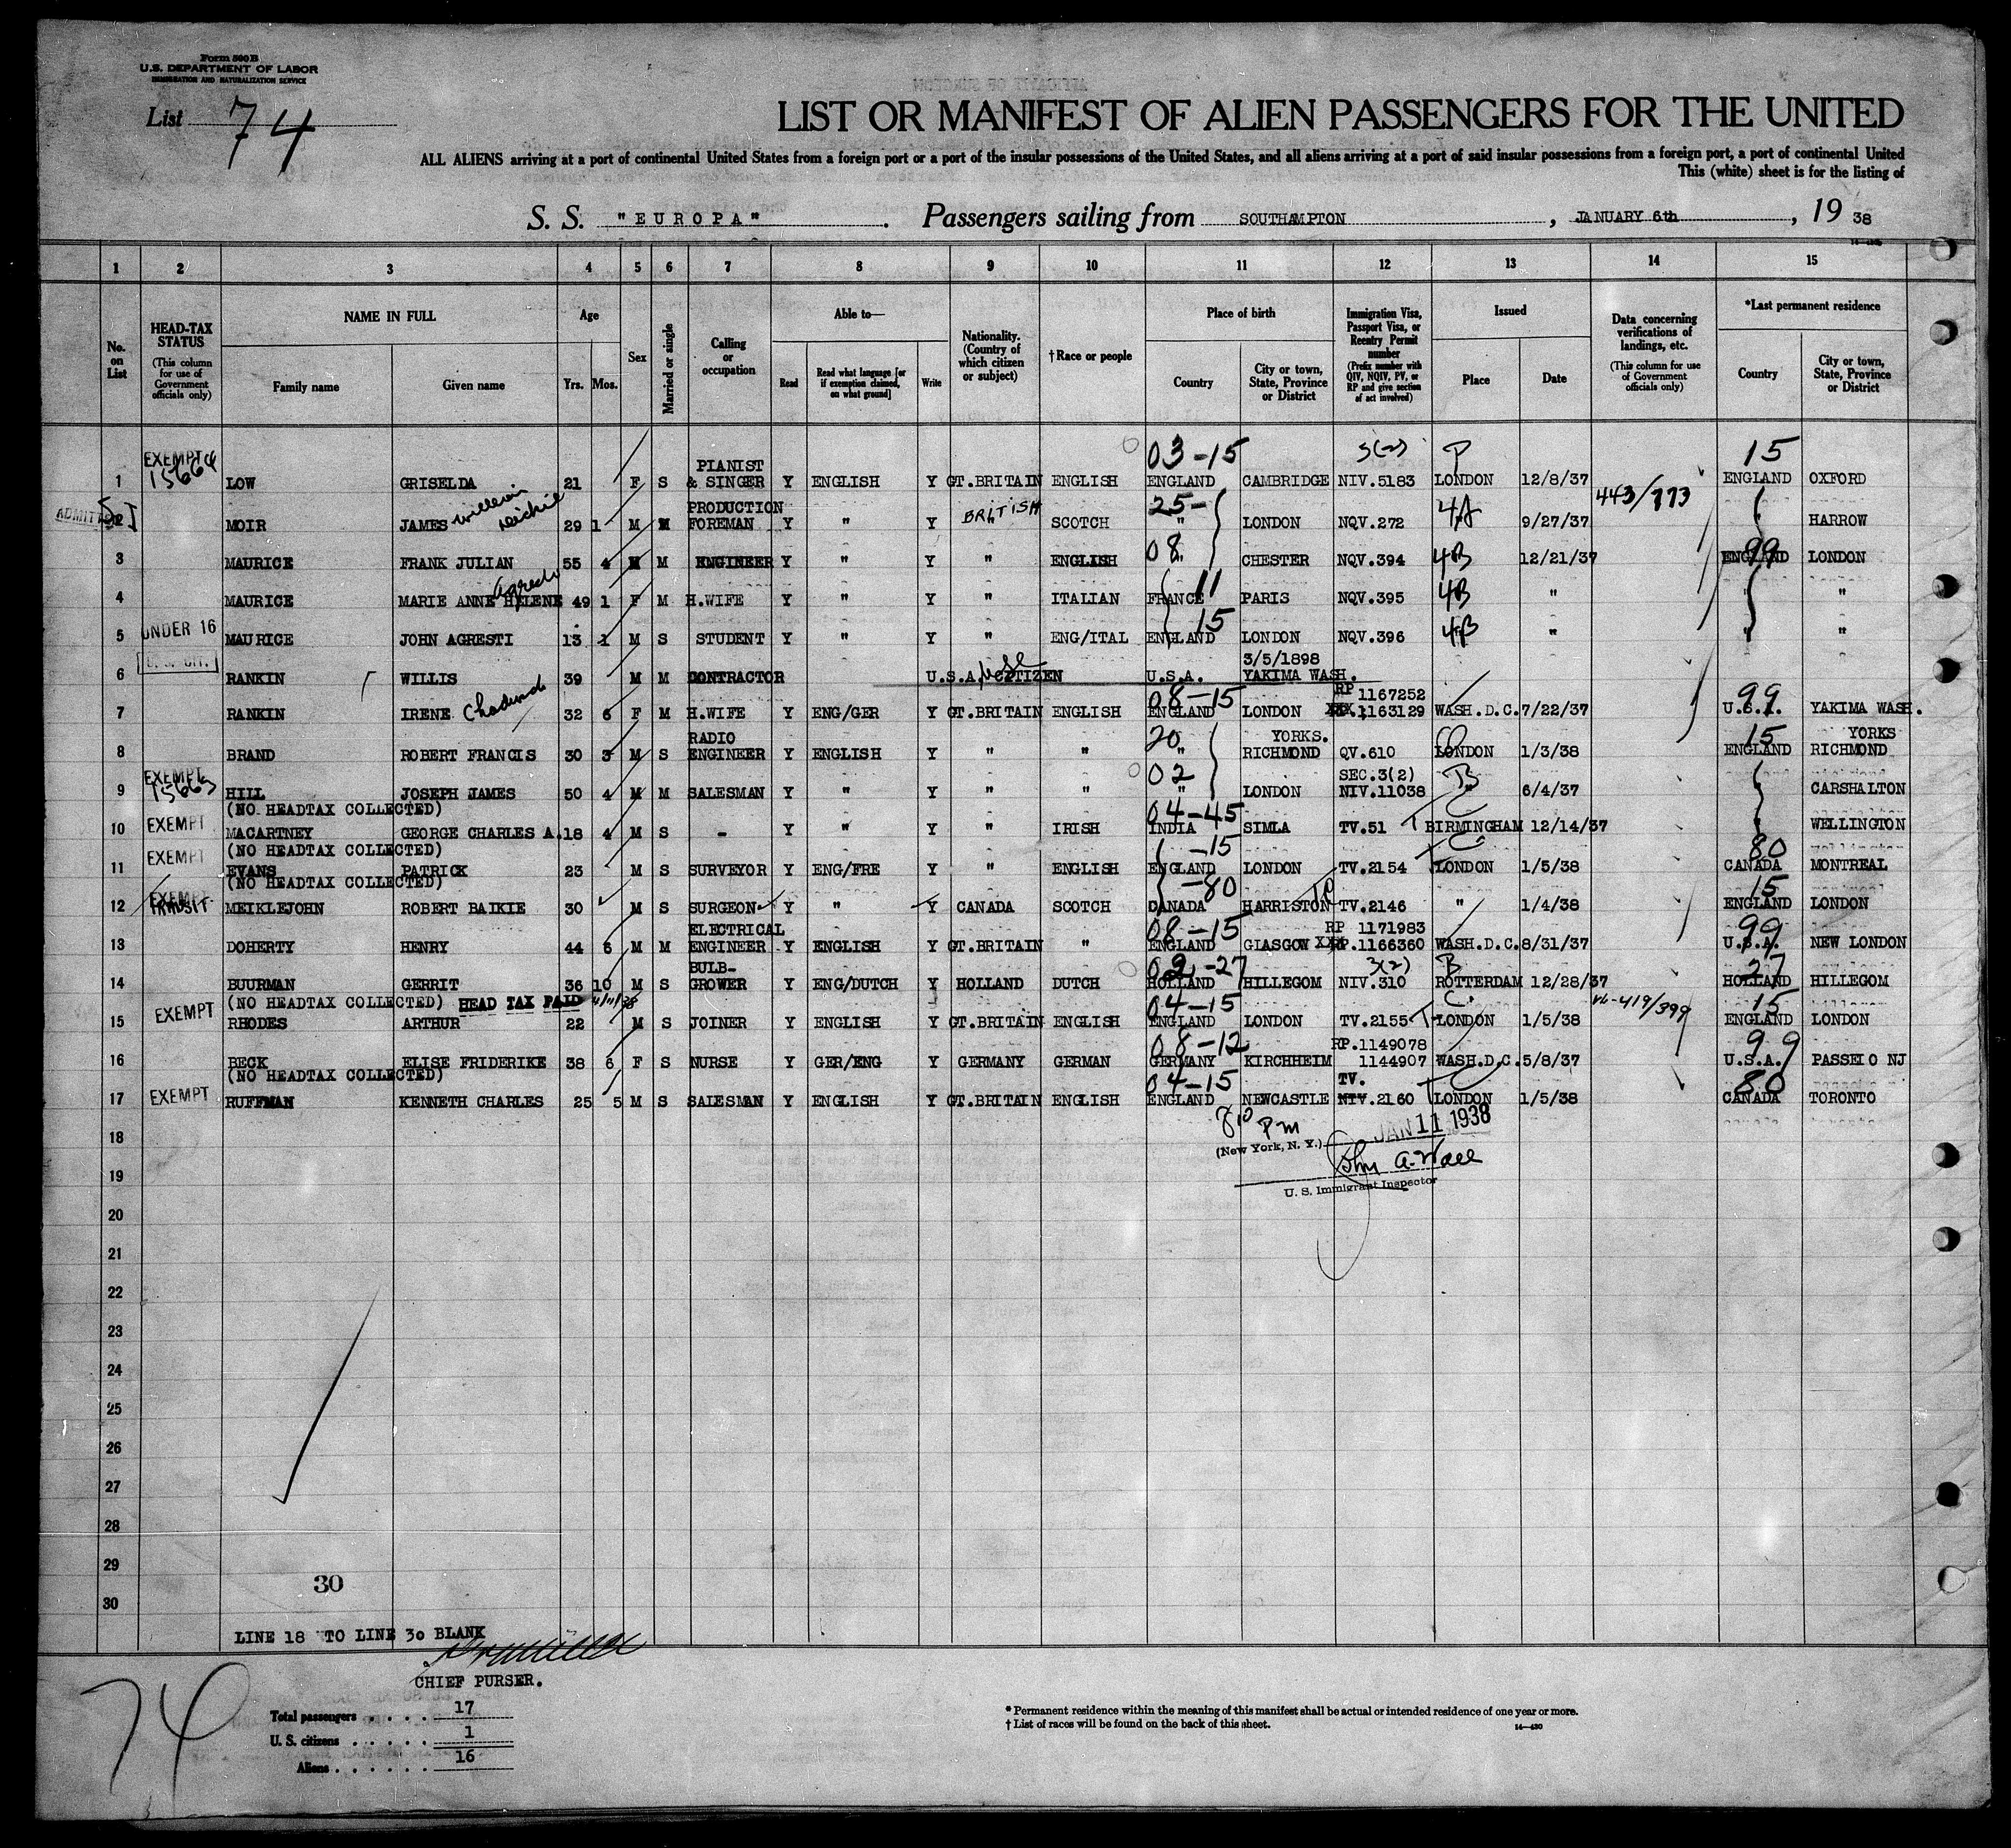 Form 500B
U.S. DEPARTMENT OF LABOR
IMMIGRATION AND NATURALIZATION SERVICE
List 74
LIST OR MANIFEST OF ALIEN PASSENGERS FOR THE UNITED
ALL ALIENS arriving at a port of continental United States from a foreign port or a port of the insular possessions of the United States, and all aliens arriving at a port of said insular possessions from a foreign port, a port of continental United
This (white) sheet is for the listing of
S. S. "EUROPA". Passengers sailing from SOUTHAMPTON, JANUARY 6th, 19 38
1 2 3 4 5 6 7 8 9 10 11 12 13 14 15
No. on List
HEAD-TAX STATUS (This column for use of Government officials only)
NAME IN FULL Family name Given name
Age Yrs. Mos.
Sex
Married or single
Calling or occupation
Able to— Read Read what language [or if exemption claimed, on what ground] Write
Nationality. (Country of which citizen or subject)
† Race or people
Place of birth Country City or town, State, Province or District
Immigration Visa, Passport Visa, or Reentry Permit number (Prefix number with QIV, NQIV, PV, or RP and give section of act involved)
Issued Place Date
Data concerning verifications of landings, etc. (This column for use of Government officials only)
*Last permanent residence Country City or town, State, Province or District
EXEMPT 03-15 3(2) P 15
1 15664 LOW GRISELDA 21 F S PIANIST & SINGER Y ENGLISH Y GT.BRITAIN ENGLISH ENGLAND CAMBRIDGE NIV.5183 LONDON 12/8/37 ENGLAND OXFORD
ADMITTED 2 MOIR JAMES William 29 1 M M PRODUCTION FOREMAN Y " Y British " SCOTCH 25- " LONDON NQV.272 4A 9/27/37 443/773 HARROW
3 MAURICE FRANK JULIAN 55 4 M M ENGINEER Y " Y " ENGLISH 08 " CHESTER NQV.394 4B 12/21/37 ENGLAND 99 LONDON
4 MAURICE MARIE ANNE HELENE 49 1 F M H.WIFE Y " Y " ITALIAN FRANCE 11 PARIS NQV.395 4B " "
UNDER 16
5 MAURICE JOHN AGRESTI 13 1 M S STUDENT Y " Y " ENG/ITAL ENGLAND 15 LONDON NQV.396 4B " " "
U.S. CIT.
6 RANKIN WILLIS 39 M M CONTRACTOR U.S.A. CITIZEN U.S.A. 3/5/1898 YAKIMA WASH.
7 RANKIN IRENE 32 6 F M H.WIFE Y ENG/GER Y GT.BRITAIN ENGLISH 08-15 ENGLAND LONDON RP 1167252 XXX.1163129 WASH.D.C. 7/22/37 99 U.S.A. YAKIMA WASH.
8 BRAND ROBERT FRANCIS 30 3 M S RADIO ENGINEER Y ENGLISH Y " " 20 " YORKS. RICHMOND QV.610 LONDON 1/3/38 15 ENGLAND YORKS RICHMOND
EXEMPT
9 15663 HILL JOSEPH JAMES 50 4 M M SALESMAN Y " Y " " 02 LONDON SEC.3(2) NIV.11038 B " 6/4/37 CARSHALTON
(NO HEADTAX COLLECTED)
10 EXEMPT MACARTNEY GEORGE CHARLES A. 18 4 M S - Y " Y " IRISH 04-45 INDIA SIMLA TV.51 BIRMINGHAM 12/14/37 " WELLINGTON
(NO HEADTAX COLLECTED)
11 EXEMPT EVANS PATRICK 23 M S SURVEYOR Y ENG/FRE Y " ENGLISH -15 ENGLAND LONDON TV.2154 LONDON 1/5/38 80 CANADA MONTREAL
(NO HEADTAX COLLECTED)
12 EXEMPT TRANSIT MEIKLEJOHN ROBERT BAIKIE 30 M S SURGEON Y " Y CANADA SCOTCH -80 CANADA HARRISTON TV.2146 " 1/4/38 15 ENGLAND LONDON
13 DOHERTY HENRY 44 6 M M ELECTRICAL ENGINEER Y ENGLISH Y GT.BRITAIN " 08-15 ENGLAND GLASGOW RP 1171983 XXX RP.1166360 WASH.D.C. 8/31/37 99 U.S.A. NEW LONDON
14 BUURMAN GERRIT 36 10 M S BULB-GROWER Y ENG/DUTCH Y HOLLAND DUTCH 02-27 HOLLAND HILLEGOM 3(2) NIV.310 B ROTTERDAM 12/28/37 27 HOLLAND HILLEGOM
(NO HEADTAX COLLECTED) HEAD TAX PAID
15 EXEMPT RHODES ARTHUR 22 M S JOINER Y ENGLISH Y GT.BRITAIN ENGLISH 04-15 ENGLAND LONDON TV.2155 LONDON 1/5/38 419/399 15 ENGLAND LONDON
16 BECK ELISE FRIDERIKE 38 6 F S NURSE Y GER/ENG Y GERMANY GERMAN 08-12 GERMANY KIRCHHEIM RP.1149078 1144907 WASH.D.C. 5/8/37 99 U.S.A. PASSEIO NJ
(NO HEADTAX COLLECTED)
17 EXEMPT RUFFMAN KENNETH CHARLES 25 5 M S SALESMAN Y ENGLISH Y GT.BRITAIN ENGLISH 04-15 ENGLAND NEWCASTLE TV. NIV.2160 LONDON 1/5/38 80 CANADA TORONTO
18 8 10 pm JAN 11 1938
(New York, N. Y.)
19 John A. Wall
U. S. Immigrant Inspector
20
21
22
23
24
25
26
27
28
29
30
30
LINE 18 TO LINE 30 BLANK
CHIEF PURSER.
74
Total passengers . . . . 17
U. S. citizens . . . . . 1
Aliens . . . . . . 16
* Permanent residence within the meaning of this manifest shall be actual or intended residence of one year or more.
† List of races will be found on the back of this sheet.
14—430